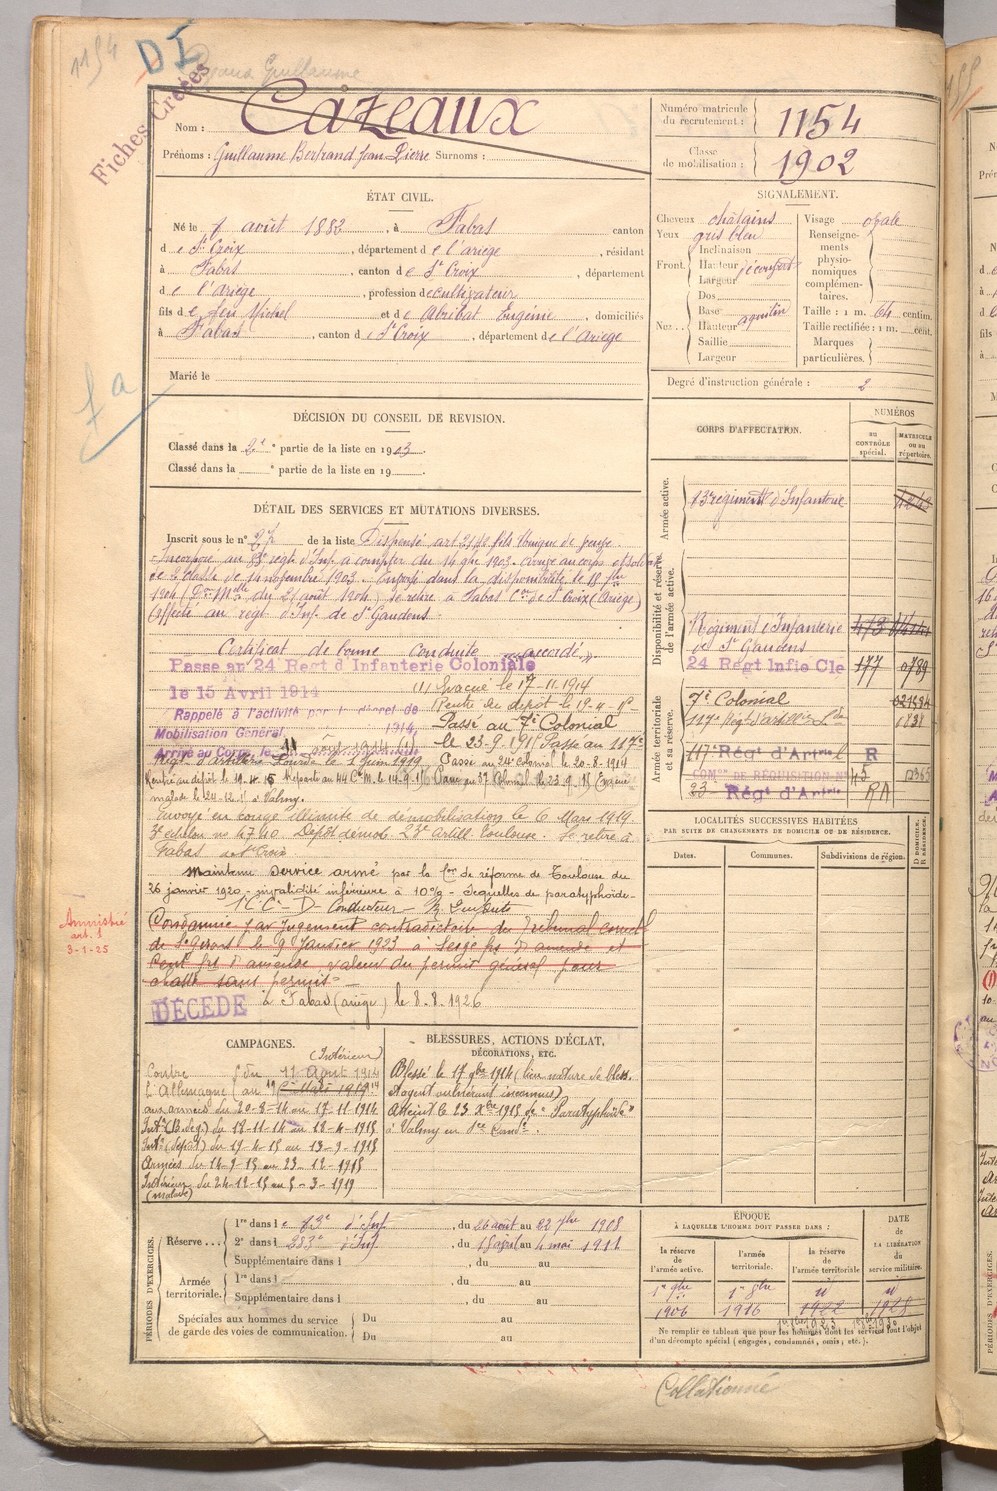 1154
DI
Guillaume
Fiches Créées
Nom : Cazeaux
Prénoms : Guillaume Bertrand Jean Pierre Surnoms :
Numéro matricule du recrutement : 1154
Classe de mobilisation : 1902
ÉTAT CIVIL.
Né le 7 août 1882, à Fabas canton
d e Ste Croix, département d e l'ariège, résidant
à Fabas, canton d e Ste Croix, département
d e l'ariège, profession de cultivateur
fils d e feu Michel et d e Abribat Eugénie, domiciliés
à Fabas, canton d e Ste Croix, département d e l'Ariège
Marié le
SIGNALEMENT.
Cheveux châtains
Yeux gris bleu
Front. Inclinaison
Hauteur découvert
Largeur
Nez.. Dos
Base
Hauteur aquilin
Saillie
Largeur
Visage ovale
Renseignements physionomiques complémentaires.
Taille : 1 m. 64 centim.
Taille rectifiée : 1 m. cent.
Marques particulières.
Degré d'instruction générale : 2
DÉCISION DU CONSEIL DE REVISION.
Classé dans la 2e partie de la liste en 1903
Classé dans la partie de la liste en 19
DÉTAIL DES SERVICES ET MUTATIONS DIVERSES.
Inscrit sous le n° 27 de la liste Dispensé art 21 fils unique de veuve.
Incorporé au 83e régt d'Inf. à compter du 14 9bre 1903. arrivé au corps et soldat
de 2e classe le 14 novembre 1903. Envoyé dans la disponibilité le 18 7bre
1904 (Don Mlle du 21 août 1904) se retire à Fabas Con de Ste Croix (Ariège)
Affecté au régt d'Inf. de St Gaudens.
Certificat de bonne conduite "accordé"
Passe au 24 Regt d'Infanterie Coloniale
le 15 Avril 1914
(1) Evacué le 17-11.1914
Rappelé à l'activité par le décret de
Mobilisation Général. 1914
Rentré au dépôt le 19-4-15
Passé au 7e Colonial
Arrivé au Corps, le 11 août 1914
le 23-9-1915 Passé au 117e
Régt d'artillerie Lourde le 1 Juin 1919. Passé au 24e Colonial le 20-8-1914
Rentré au dépôt le 19.4.15
malade le 24-12-15 à Valmy.
envoyé en congé illimité de démobilisation le 6 Mars 1919.
3e échelon n° 4740 Dépôt démob. 23e Artill. Toulouse. Se retire à
Fabas de Ste Croix
Maintenu Service armé par la Con de réforme de Toulouse du
26 janvier 1920 - invalidité inférieure à 10% - Séquelles de paratyphoïde.
Condamné par Jugement contradictoire du Tribunal Correctl
de St Girons le 9 Janvier 1923 à Seize frs d'amende et
Cent frs d'amende valeur du permis général pour
chasse sans permis.
Amnistié
art. 1
3-1-25
DÉCÉDÉ
à Fabas (ariège) le 8.8.1926
CORPS D'AFFECTATION.
NUMÉROS
AU CONTRÔLE spécial.
MATRICULE OU AU répertoire.
Armée active.
83e régiment d'Infanterie
Disponibilité et réserve de l'armée active.
Régiment d'Infanterie
de St Gaudens
24 Régt Infie Cle 177 0789
Armée territoriale et sa réserve.
7e Colonial
117e Régt d'artillerie Lde
117 Régt d'Artrie R
COMon DE RÉQUISITION N° 45
23e Régt d'Artrie RA
LOCALITÉS SUCCESSIVES HABITÉES
PAR SUITE DE CHANGEMENTS DE DOMICILE OU DE RÉSIDENCE.
Dates.
Communes.
Subdivisions de région.
D DOMICILE. R RÉSIDENCE.
CAMPAGNES.
(Intérieur)
Contre du 11 Août 1914
l'Allemagne au 19
aux armées du 20-8-14 au 17-11-1914
Intr (B.deg.) du 18-11-14 au 18-4-1915
Intr (dépôt) du 19-4-15 au 13-9-1915
Armées du 14-9-15 au 23-12-1915
Intérieur du 24-12-15 au 5-3-1919
(malade)
BLESSURES, ACTIONS D'ÉCLAT,
DÉCORATIONS, ETC.
Blessé le 17 9bre 1914 (lieu nature de bless.
et agent vulnérant inconnus)
Atteint le 23 Xbre 1915 de "Paratyphoïde"
à Valmy
PÉRIODES D'EXERCICES.
Réserve... 1re dans l e 83e d'Inf., du 26 août au 22 7bre 1908
2e dans l 283e d'Inf., du 18 avril au 4 mai 1911
Supplémentaire dans l , du au
Armée territoriale. 1re dans l , du au
Supplémentaire dans l , du au
Spéciales aux hommes du service de garde des voies de communication. Du au
Du au
ÉPOQUE
À LAQUELLE L'HOMME DOIT PASSER DANS :
la réserve de l'armée active.
l'armée territoriale.
la réserve de l'armée territoriale
DATE DE LA LIBÉRATION du service militaire.
1er 9bre 1er 8bre
1906 1916 1922 1928
Ne remplir ce tableau que pour les hommes dont les services font l'objet
d'un décompte spécial (engagés, condamnés, omis, etc.).
Collationné